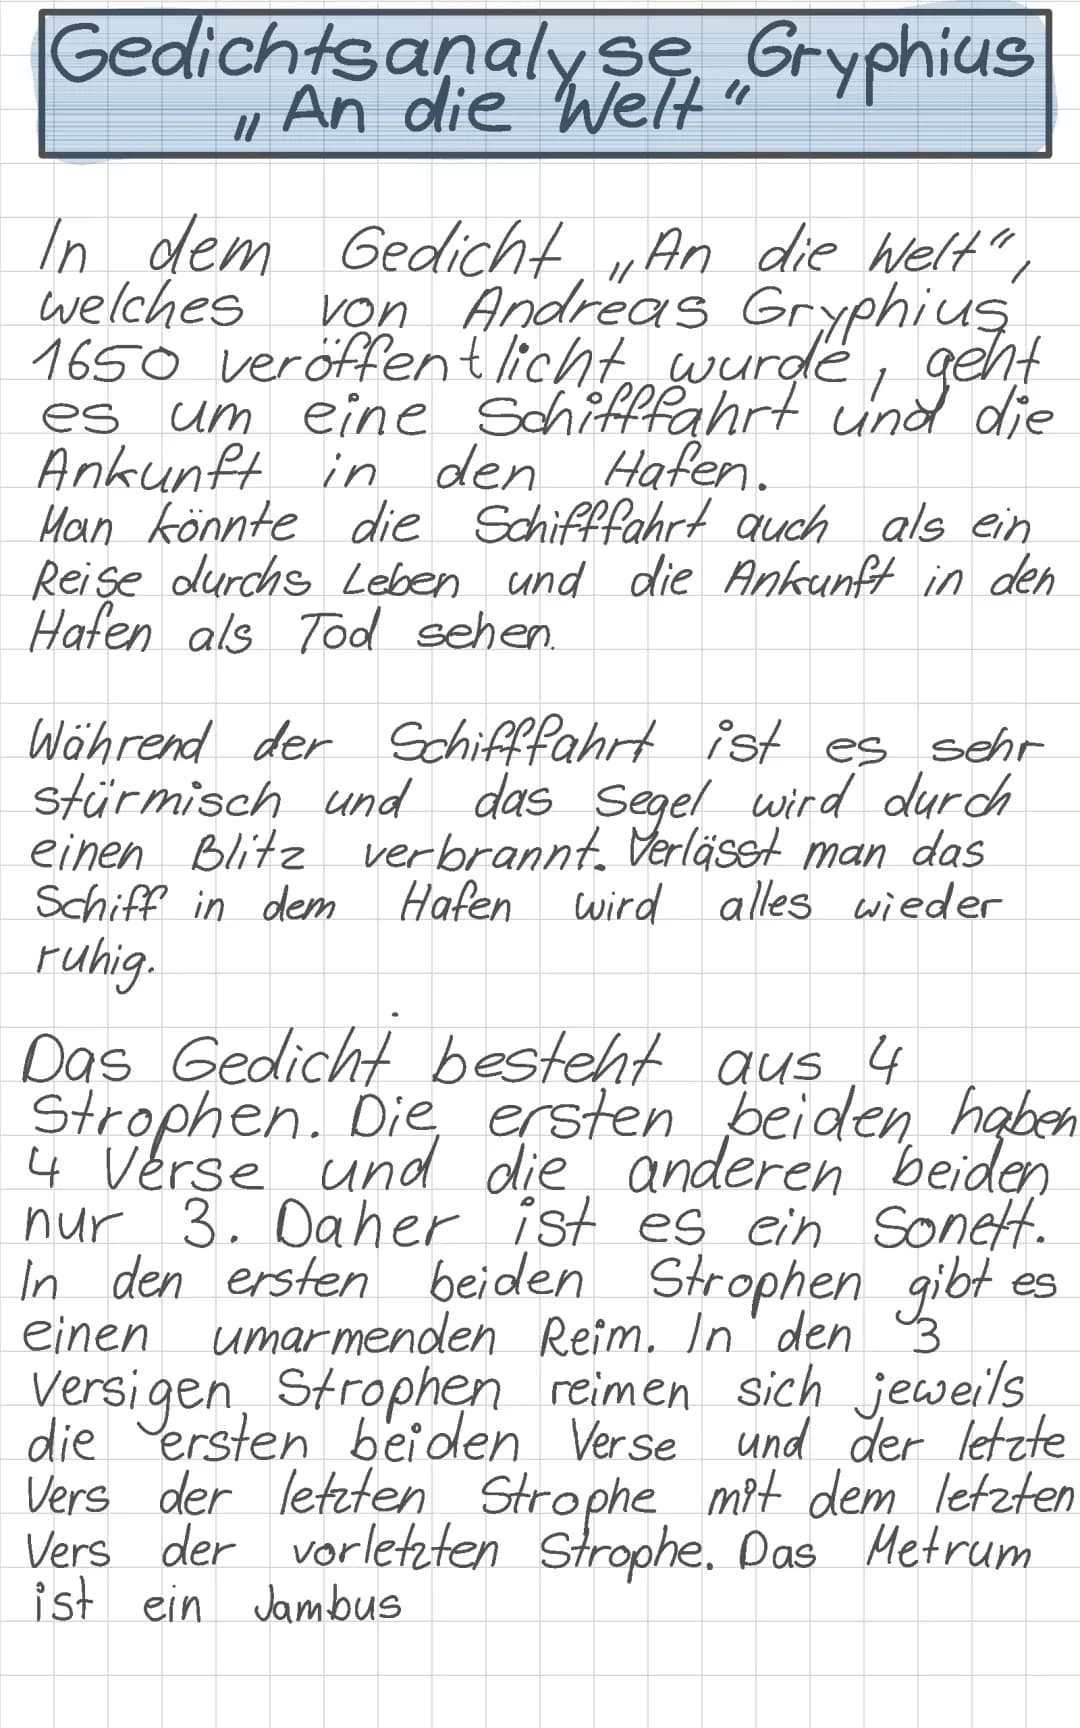 Gedichtsanalyse Gryphius
„An die Welt"
In dem Gedicht „An die Welt",
welches von Andreas Gryphius
1650 veröffentlicht wurde, geht
es um eine Schifffahrt und die
Ankunft in den Hafen.
Man könnte die Schifffahrt auch als ein
Reise durchs Leben und die Ankunft in den
Hafen als Tod sehen.
Während der Schifffahrt ist es sehr
stürmisch und das Segel wird durch
einen Blitz verbrannt. Verlässt man das
Schiff in dem Hafen wird alles wieder
ruhig.
Das Gedicht besteht aus 4
Strophen. Die ersten beiden haben
4 Verse und die anderen beiden
nur 3. Daher ist es ein Sonett.
In den ersten beiden Strophen gibt es
einen umarmenden Reim. In den 3
versigen Strophen reimen sich jeweils
die ersten beiden Verse und der letzte
Vers der letzten Strophe mit dem letzten
Vers der vorletzten Strophe. Das Metrum
ist ein Jambus